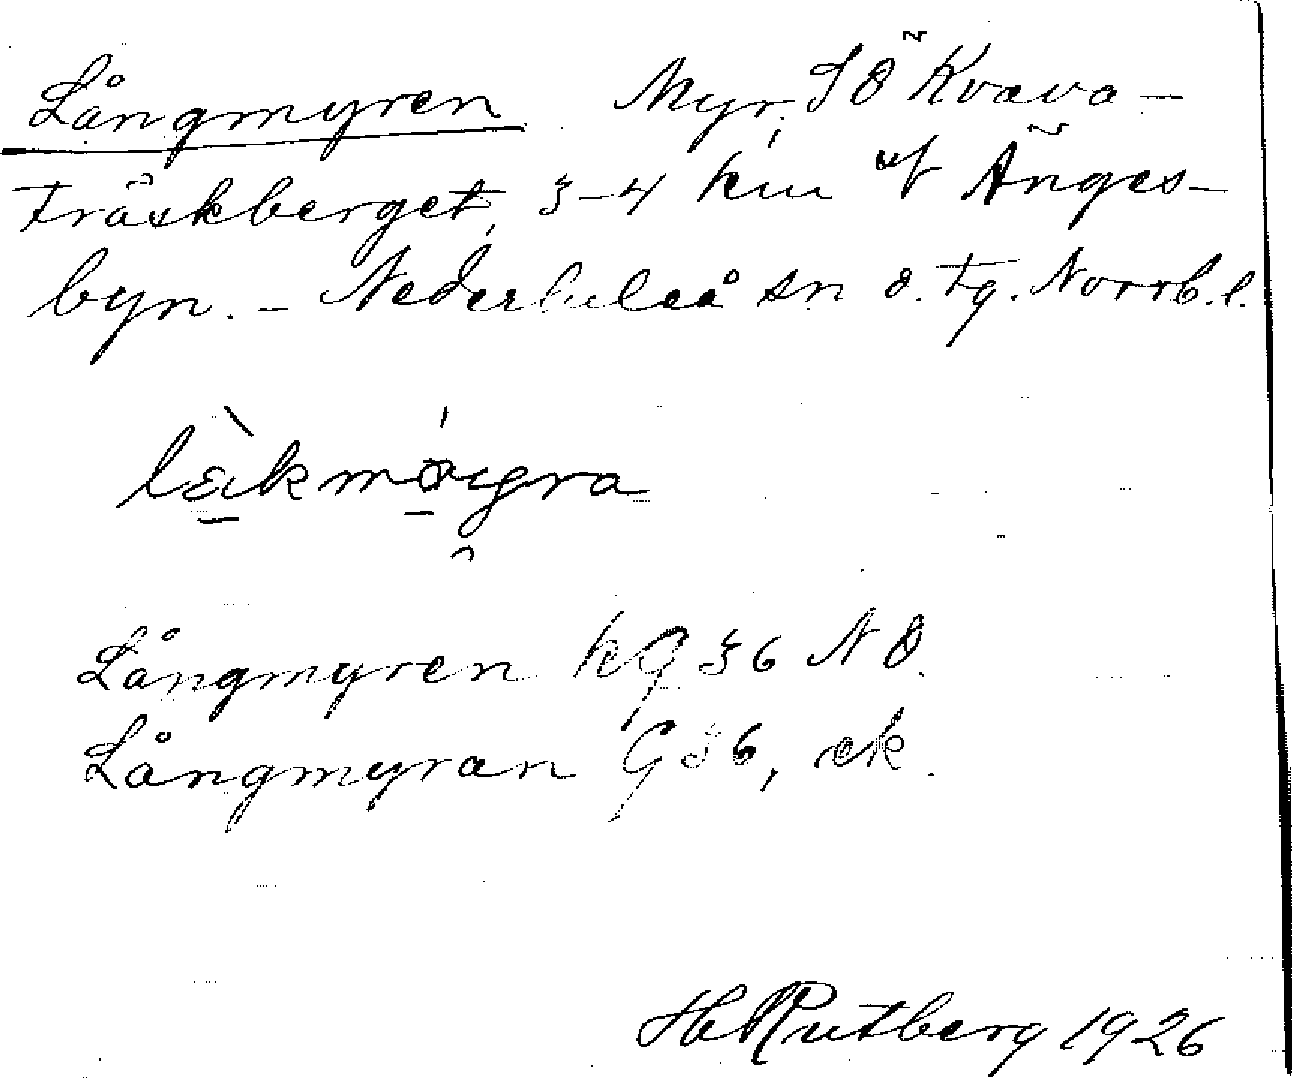 Långmyren Myr SÖ Kvava-
träskberget, 3-4 km uf Ängés-
byn. - Nederluleå sn ö. tg. Norrb.l.
Långmyren kG 36 NÖ.
Långmyran G 36, ek.
H Rutberg 1926